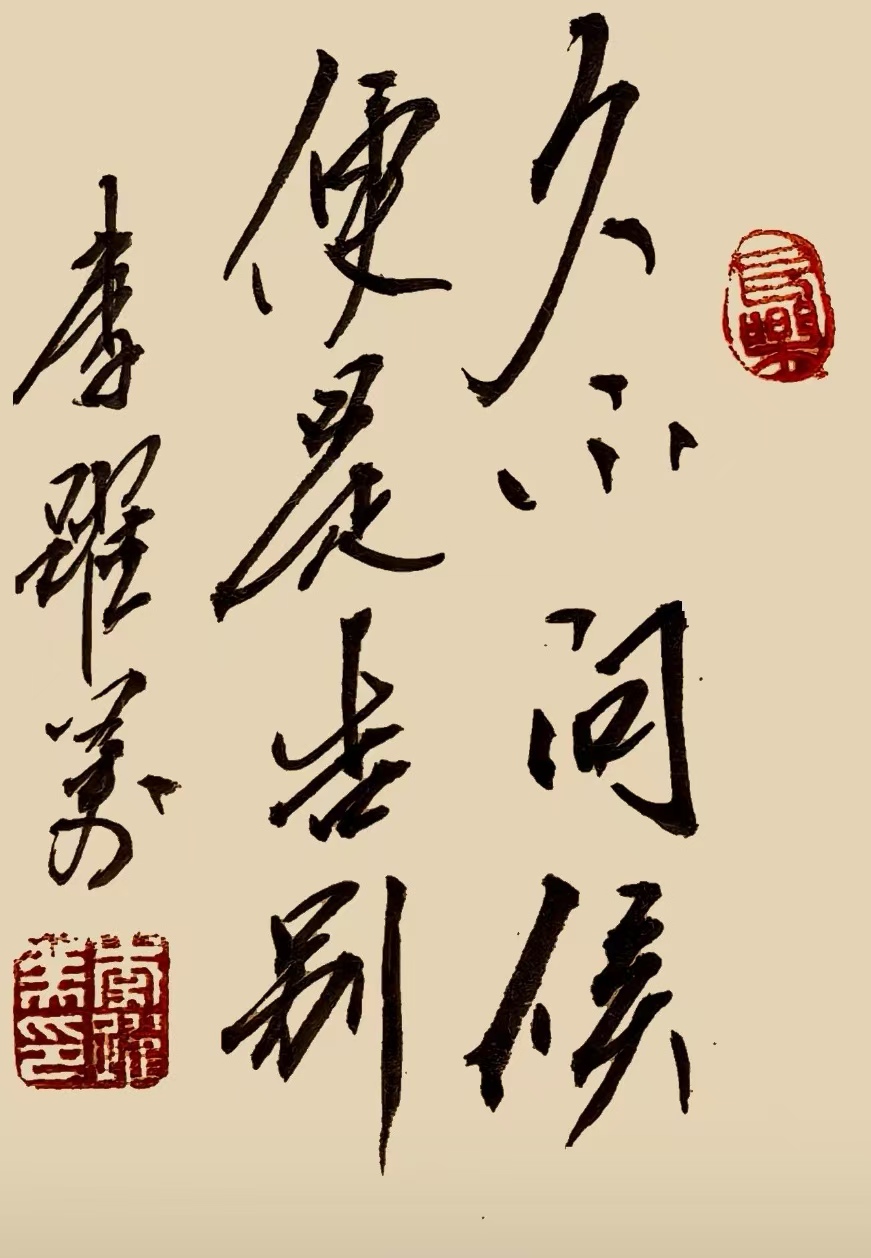 久不问候
便是告别
李躍